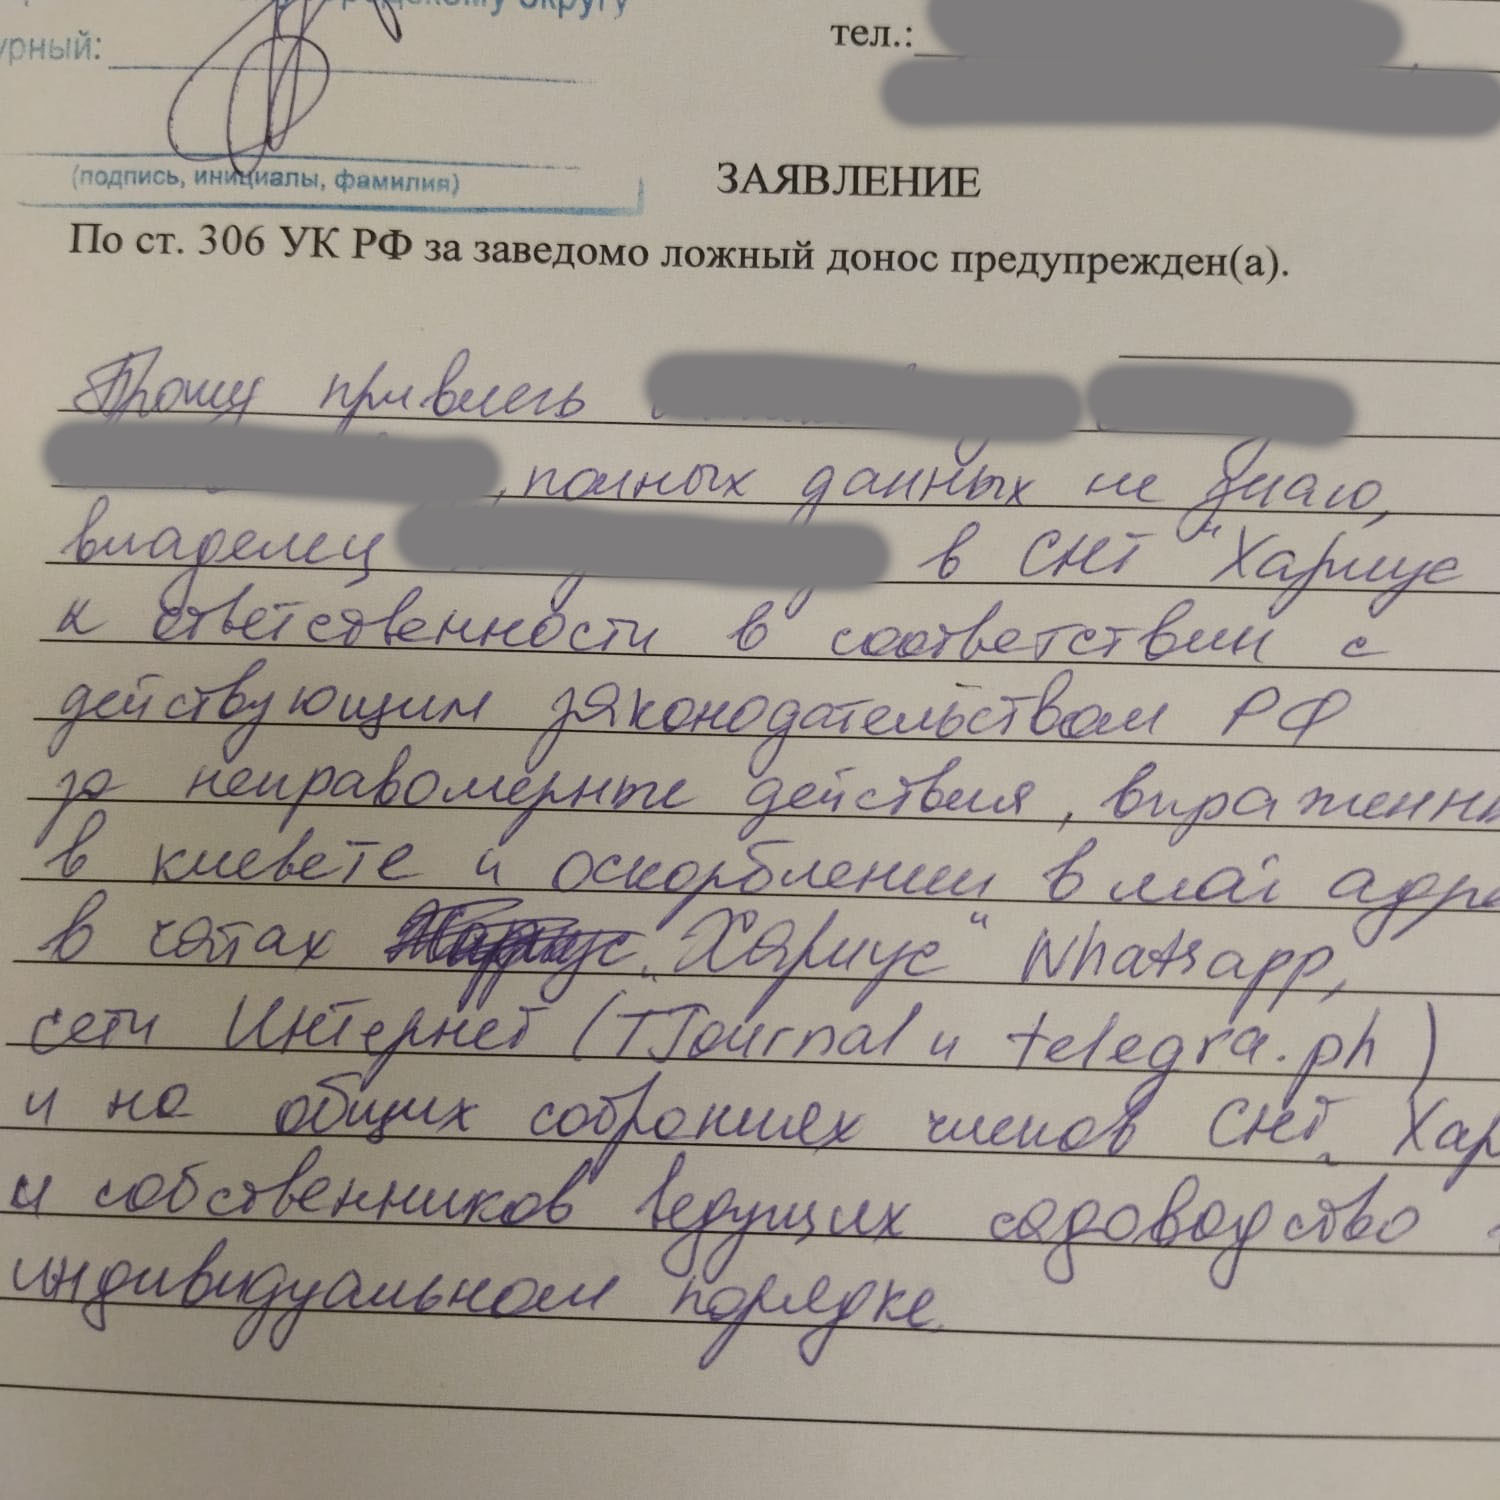 округу
урный:
тел.:
(подпись, инициалы, фамилия)
ЗАЯВЛЕНИЕ
По ст. 306 УК РФ за заведомо ложный донос предупрежден(а).
Прошу привлечь
, полных данных не знаю,
владелец в СНТ "Хариус
к ответственности в соответствии с
действующим законодательством РФ
за неправомерные действия, выраженны
в клевете и оскорблении в мой адре
в чатах "Хариус" Whatsapp,
сети Интернет (TJournal и telegra.ph)
и на общих собраниях членов СНТ "Хар
и собственников ведущих садоводство
индивидуальном порядке.